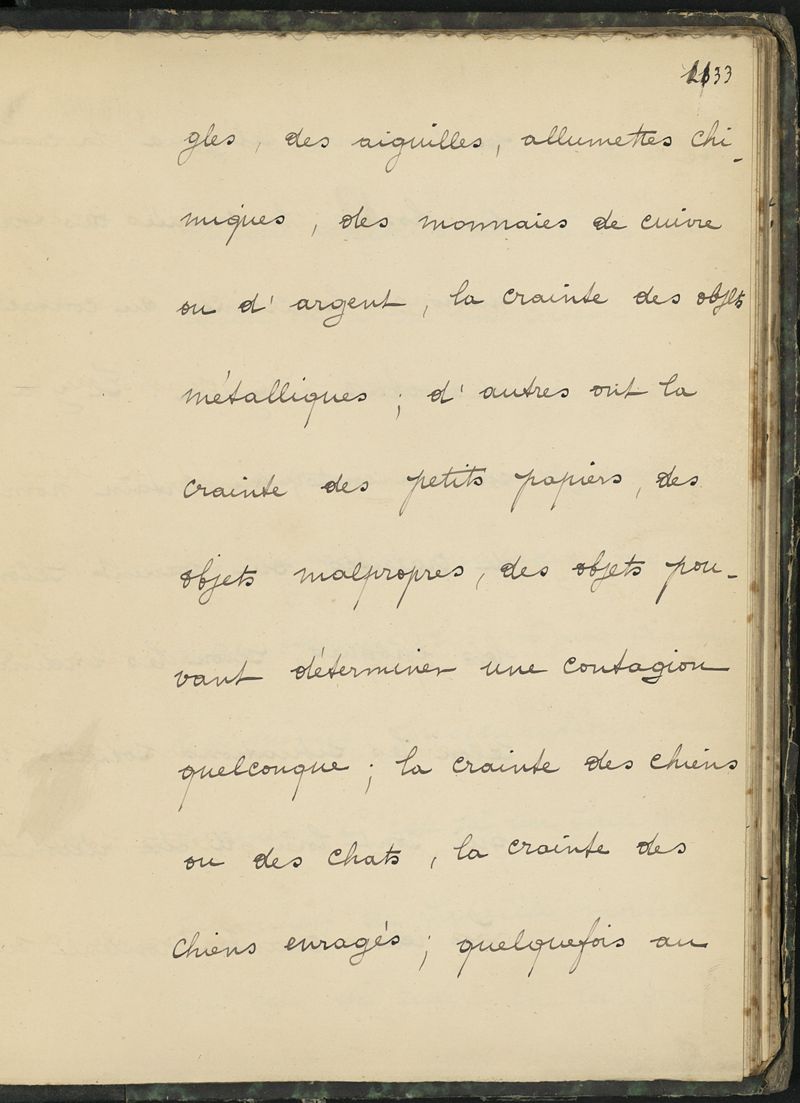 33
gles, des aiguilles, allumettes chi-
miques, des monnaies de cuivre
ou d'argent, la crainte des objets
métalliques ; d'autres ont la
crainte des petits papiers, des
objets malpropres, des objets pou-
vant déterminer une contagion
quelconque ; la crainte des chiens
ou des chats, la crainte des
chiens enragés ; quelquefois au